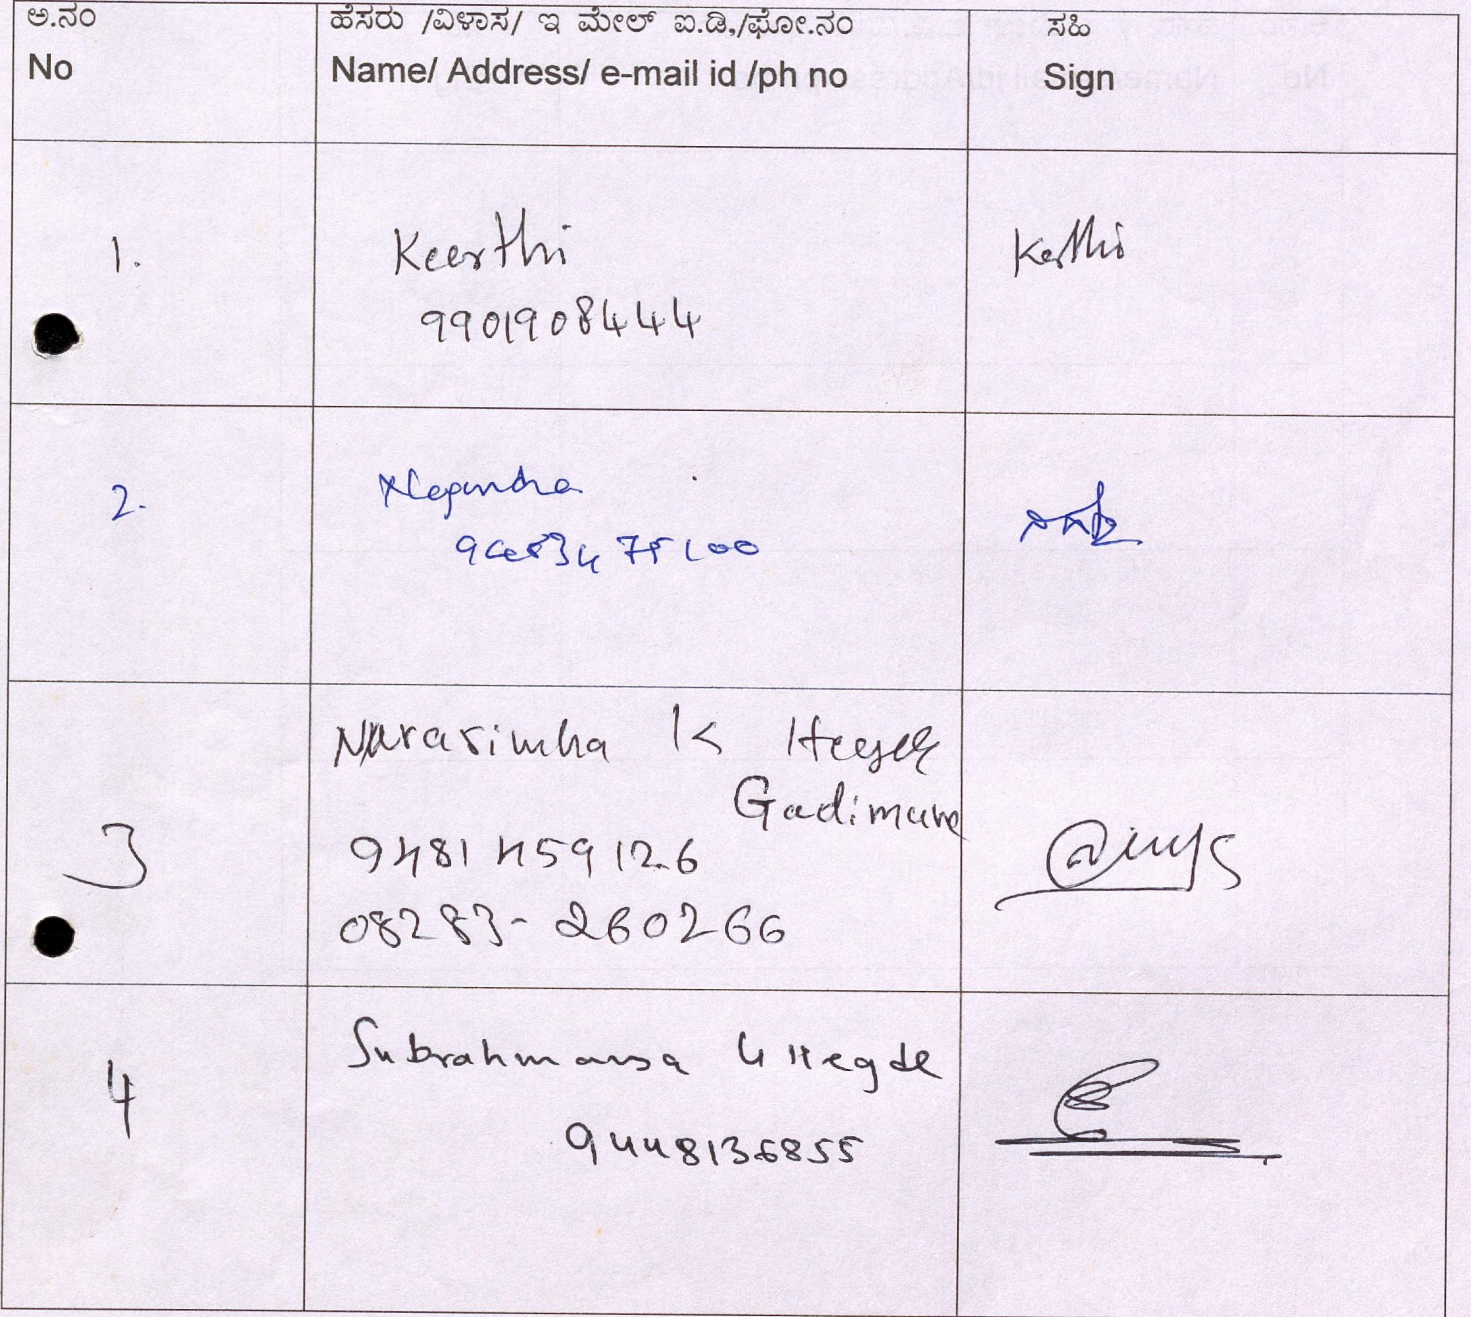 ಅ.ನಂ ಹೆಸರು /ವಿಳಾಸ/ ಇ ಮೇಲ್ ಐ.ಡಿ,/ಫೋ.ನಂ ಸಹಿ
No Name/ Address/ e-mail id /ph no Sign
1. Keerthi Kerthi
9901908444
2. Nagendra
3 Narasimha K Hegde
Gadimane
9481459126
08283-260266
4 Subrahmanya G Hegde
9448136855